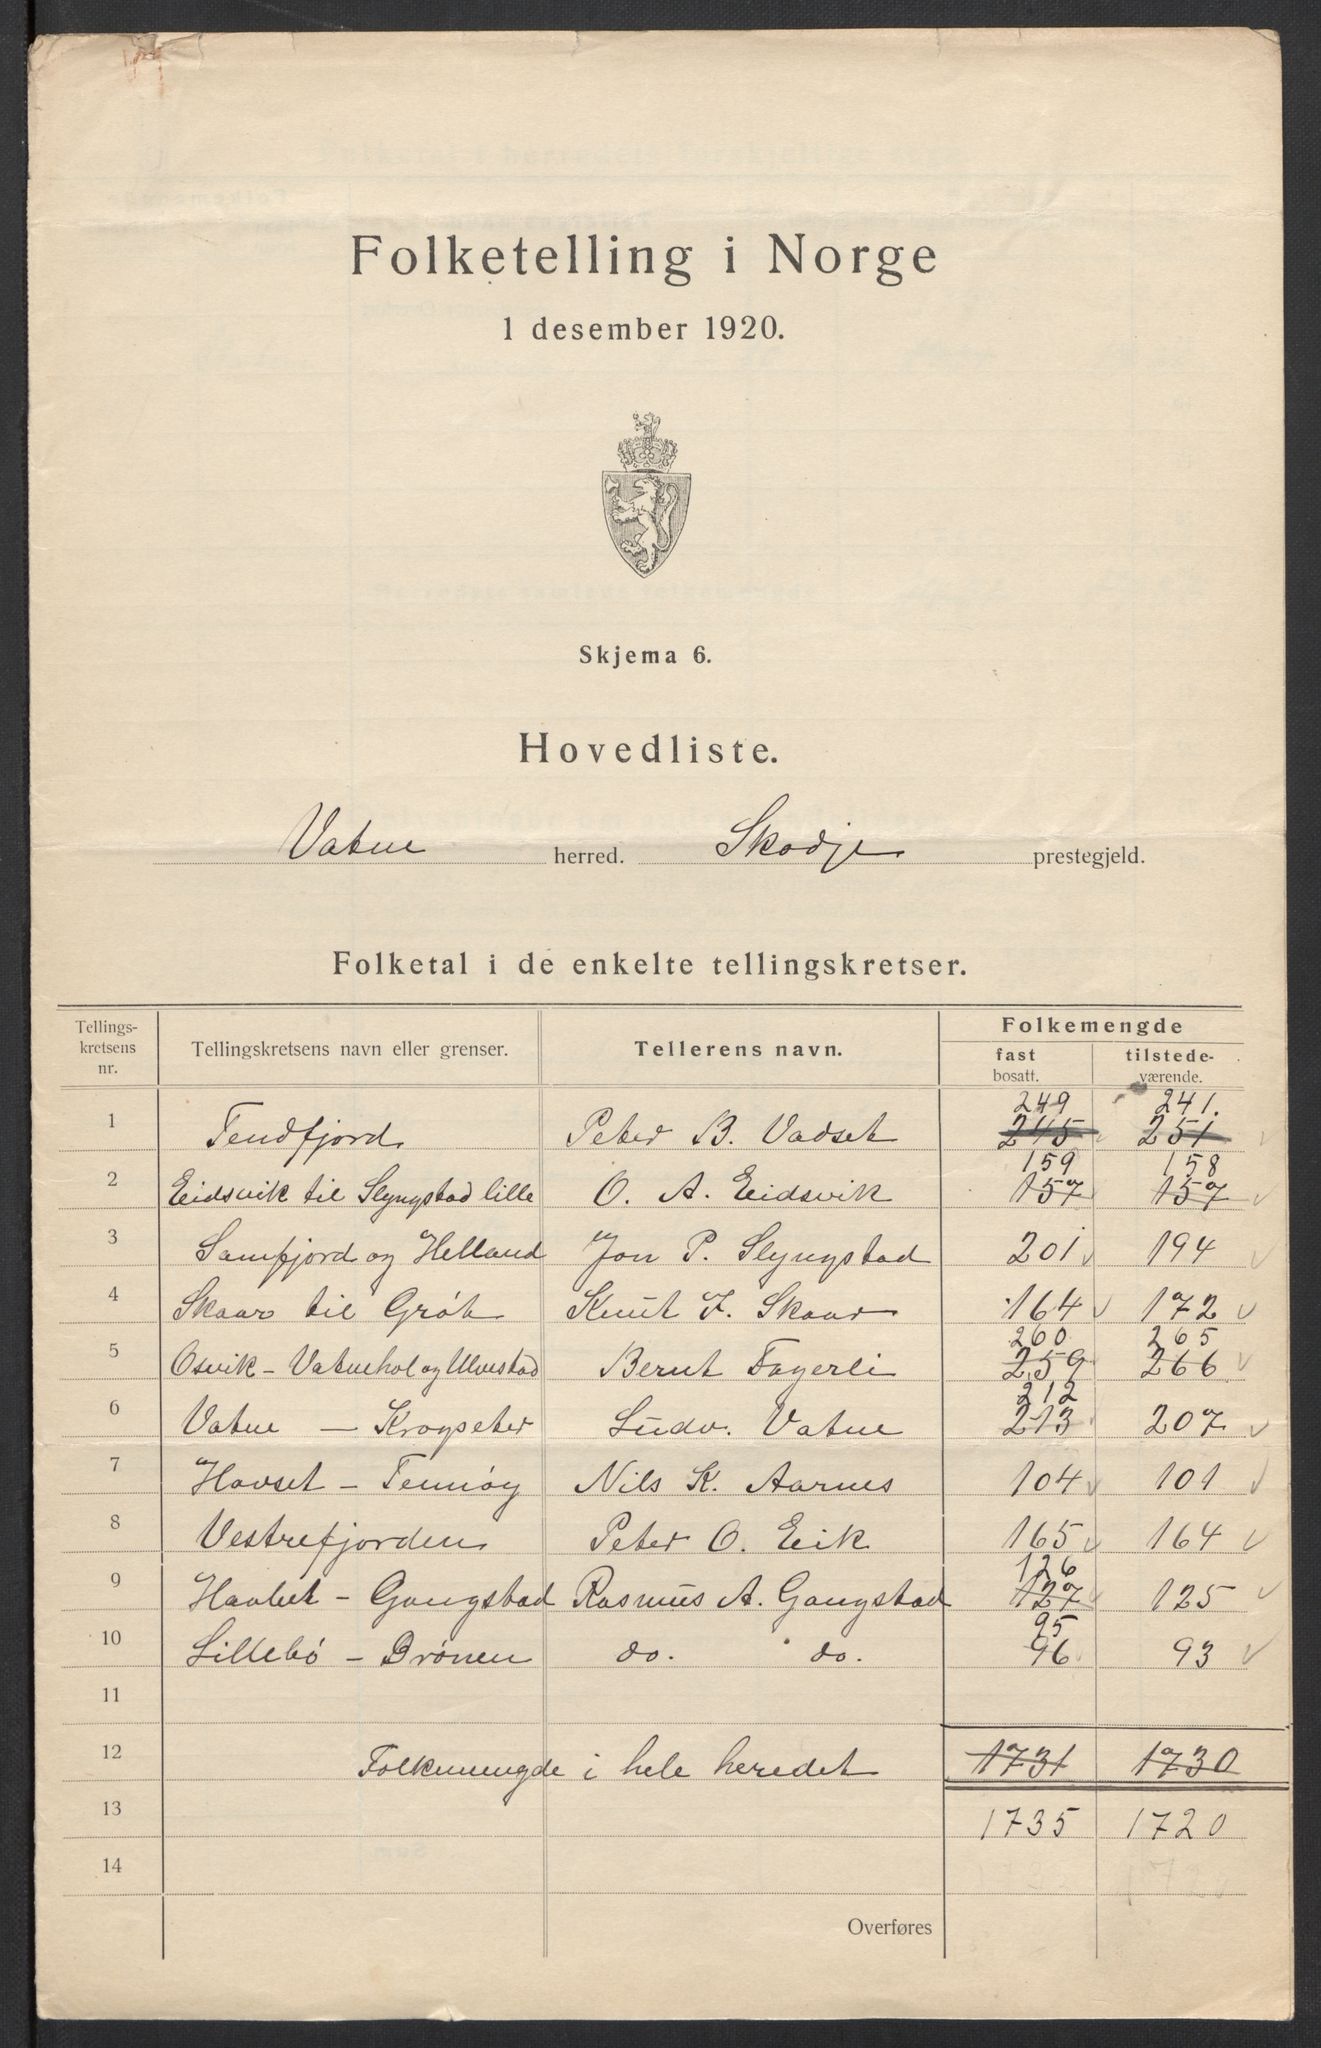 Folketelling i Norge
1 desember 1920.
Skjema 6.
Hovedliste.
Vatne herred. Skodje prestegjeld.
Folketal i de enkelte tellingskretser.
Tellings-kretsens nr. Tellingskretsens navn eller grenser. Tellerens navn. Folkemengde
fast bosatt. tilstede-værende.
249 241.
1 Tendfjord Peter B. Vadset 245 251
159 158
2 Eidsvik til Slyngstad lille O. A. Eidsvik 157 157
3 Samfjord og Helland Jon P. Slyngstad 201 194
4 Skaar til Gröt Knut J. Skaar 164 172
260 265
5 Osvik - Vatnehol og Ulvestad Bernt Fagerli 259 266
212
6 Vatne - Krogseter Ludv. Vatne 213 207
7 Havset - Tennøy Nils K. Aarnes 104 101
8 Vestrefjorden Peter O. Eik 165 164
126
9 Hambet - Gangstad Rasmus A. Gangstad 127 125
95
10 Lillebö - Brönen do. do. 96 93
11
12 Folkemengde i hele heredet 1731 1730
13 1735 1720
14
Overføres